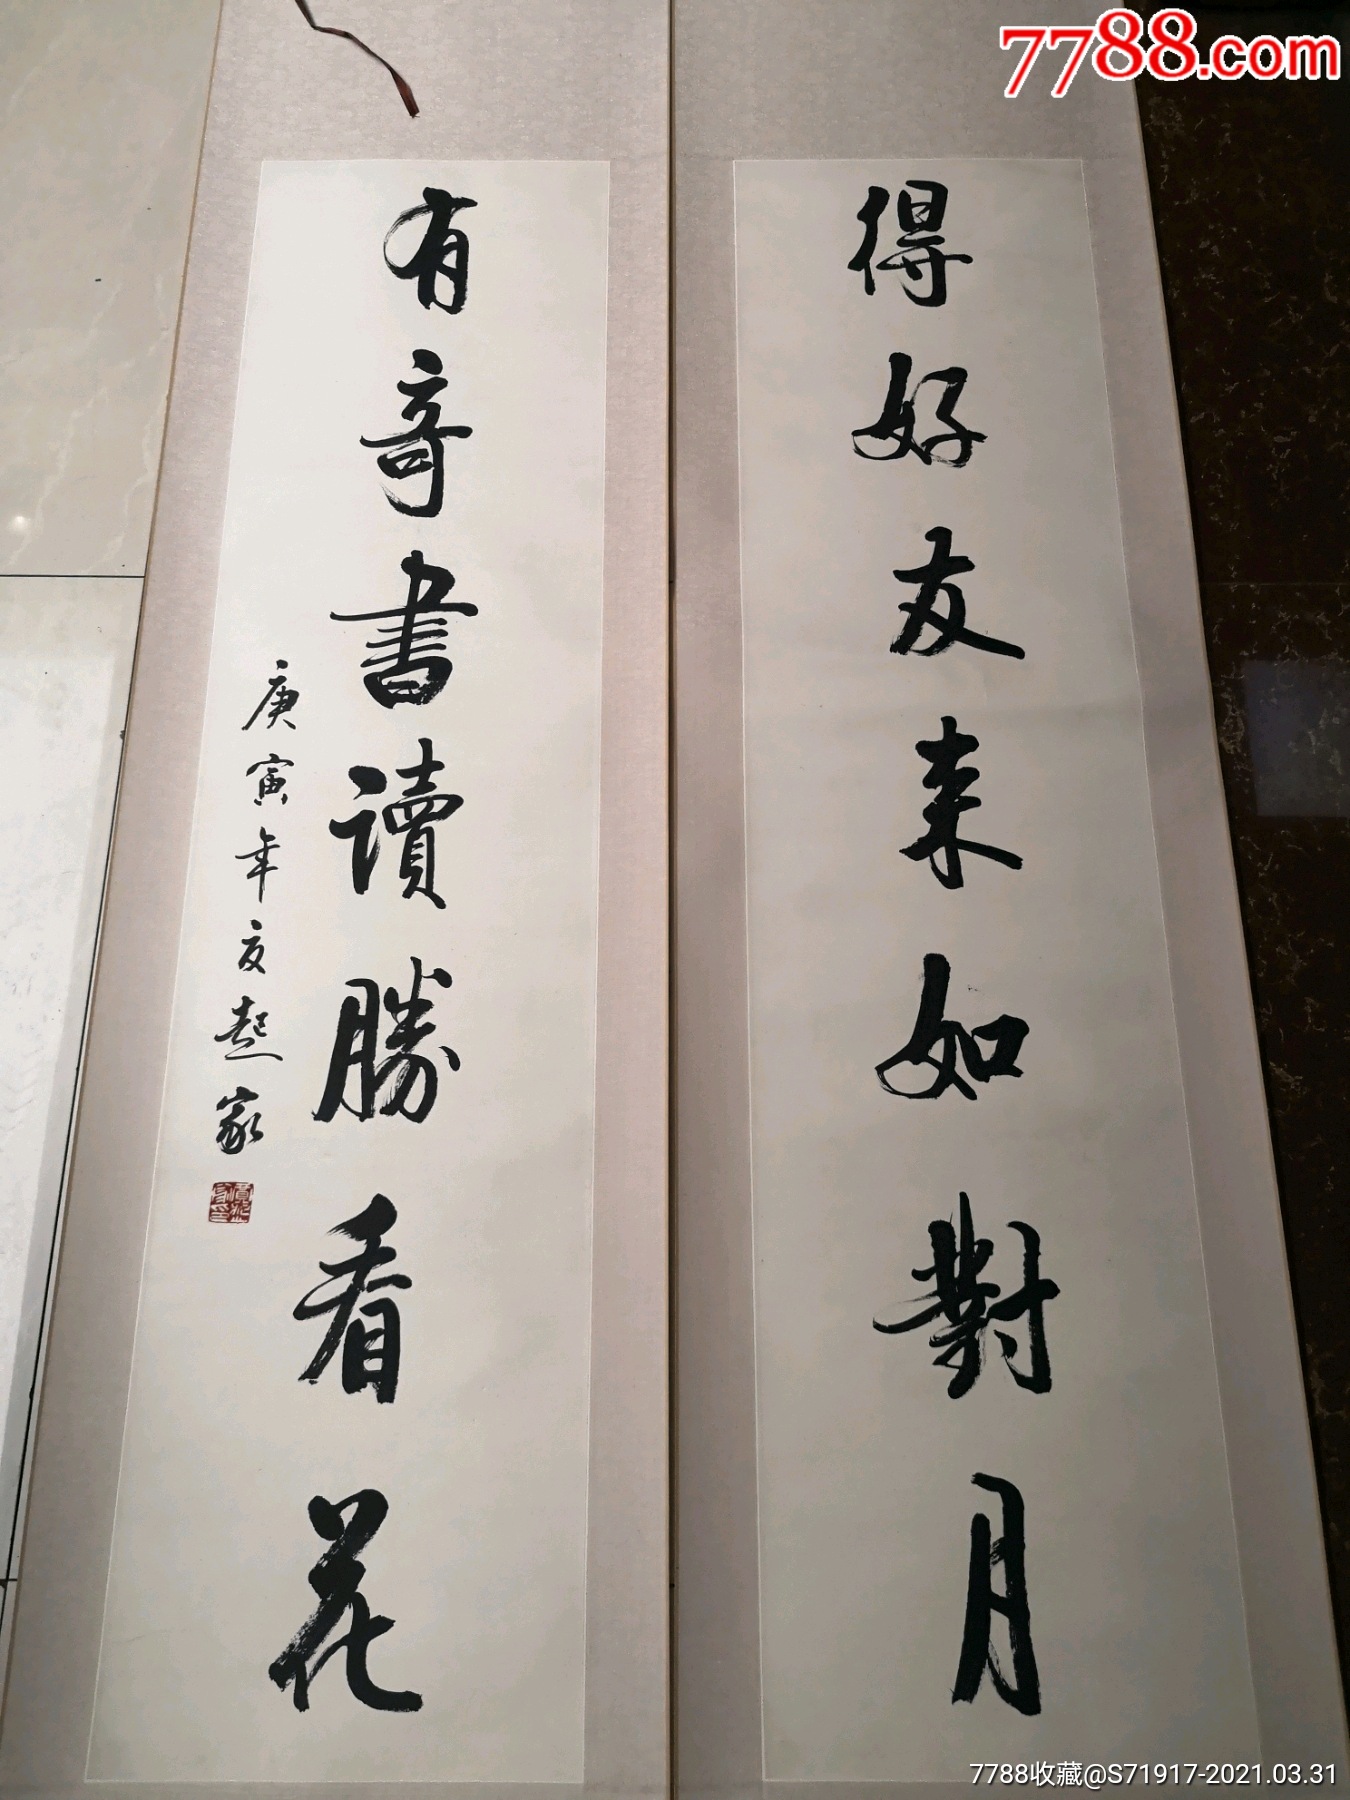 7788.com
得好友来如對月
有奇書讀勝看花
庚寅年夏起家
7788收藏@S71917-2021.03.31